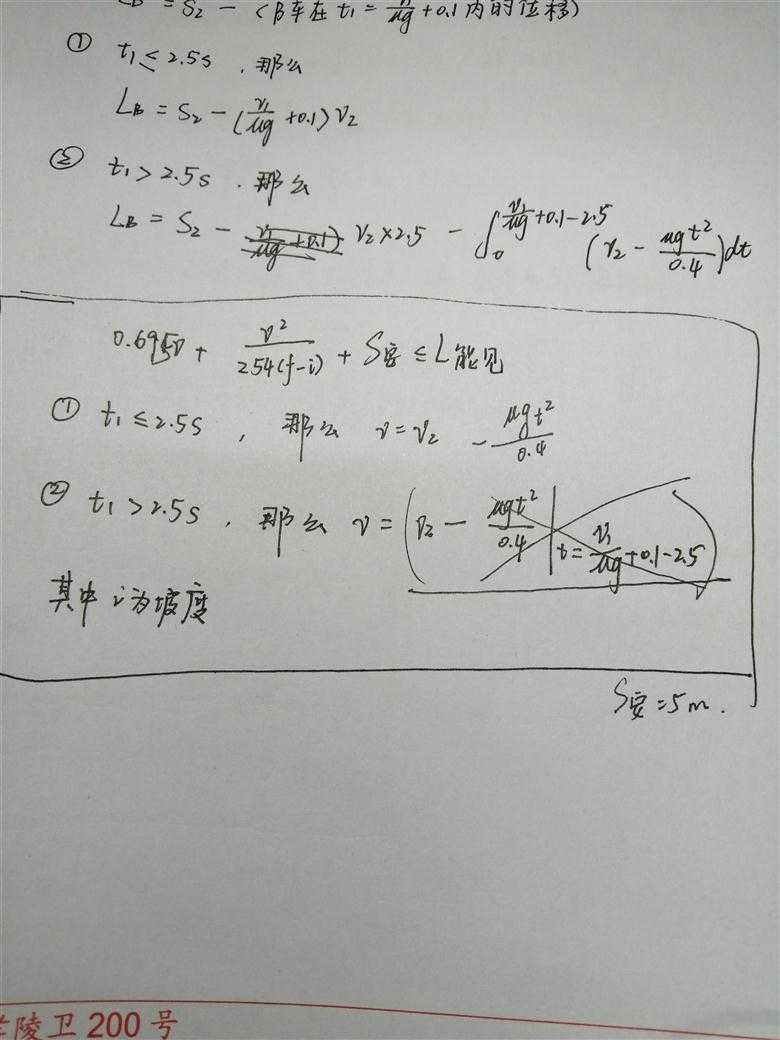 L_B = S₂ − (B车在 t₁ = v₁/μg + 0.1 内的位移)
① t₁ ≤ 2.5s , 那么
L_B = S₂ − (v₁/μg + 0.1) v₂
② t₁ > 2.5s , 那么
L_B = S₂ − v₂ × 2.5 − ∫₀^(v₁/μg + 0.1 − 2.5) (v₂ − μgt²/0.4) dt
0.695v + v²/254(f−i) + S安 ≤ L能见
① t₁ ≤ 2.5s , 那么 v = v₂ − μgt²/0.4
② t₁ > 2.5s , 那么 v = (v₂ − μgt²/0.4 | t = v₁/μg + 0.1 − 2.5)
其中 i 为坡度
S安 = 5m .
陵卫 200 号